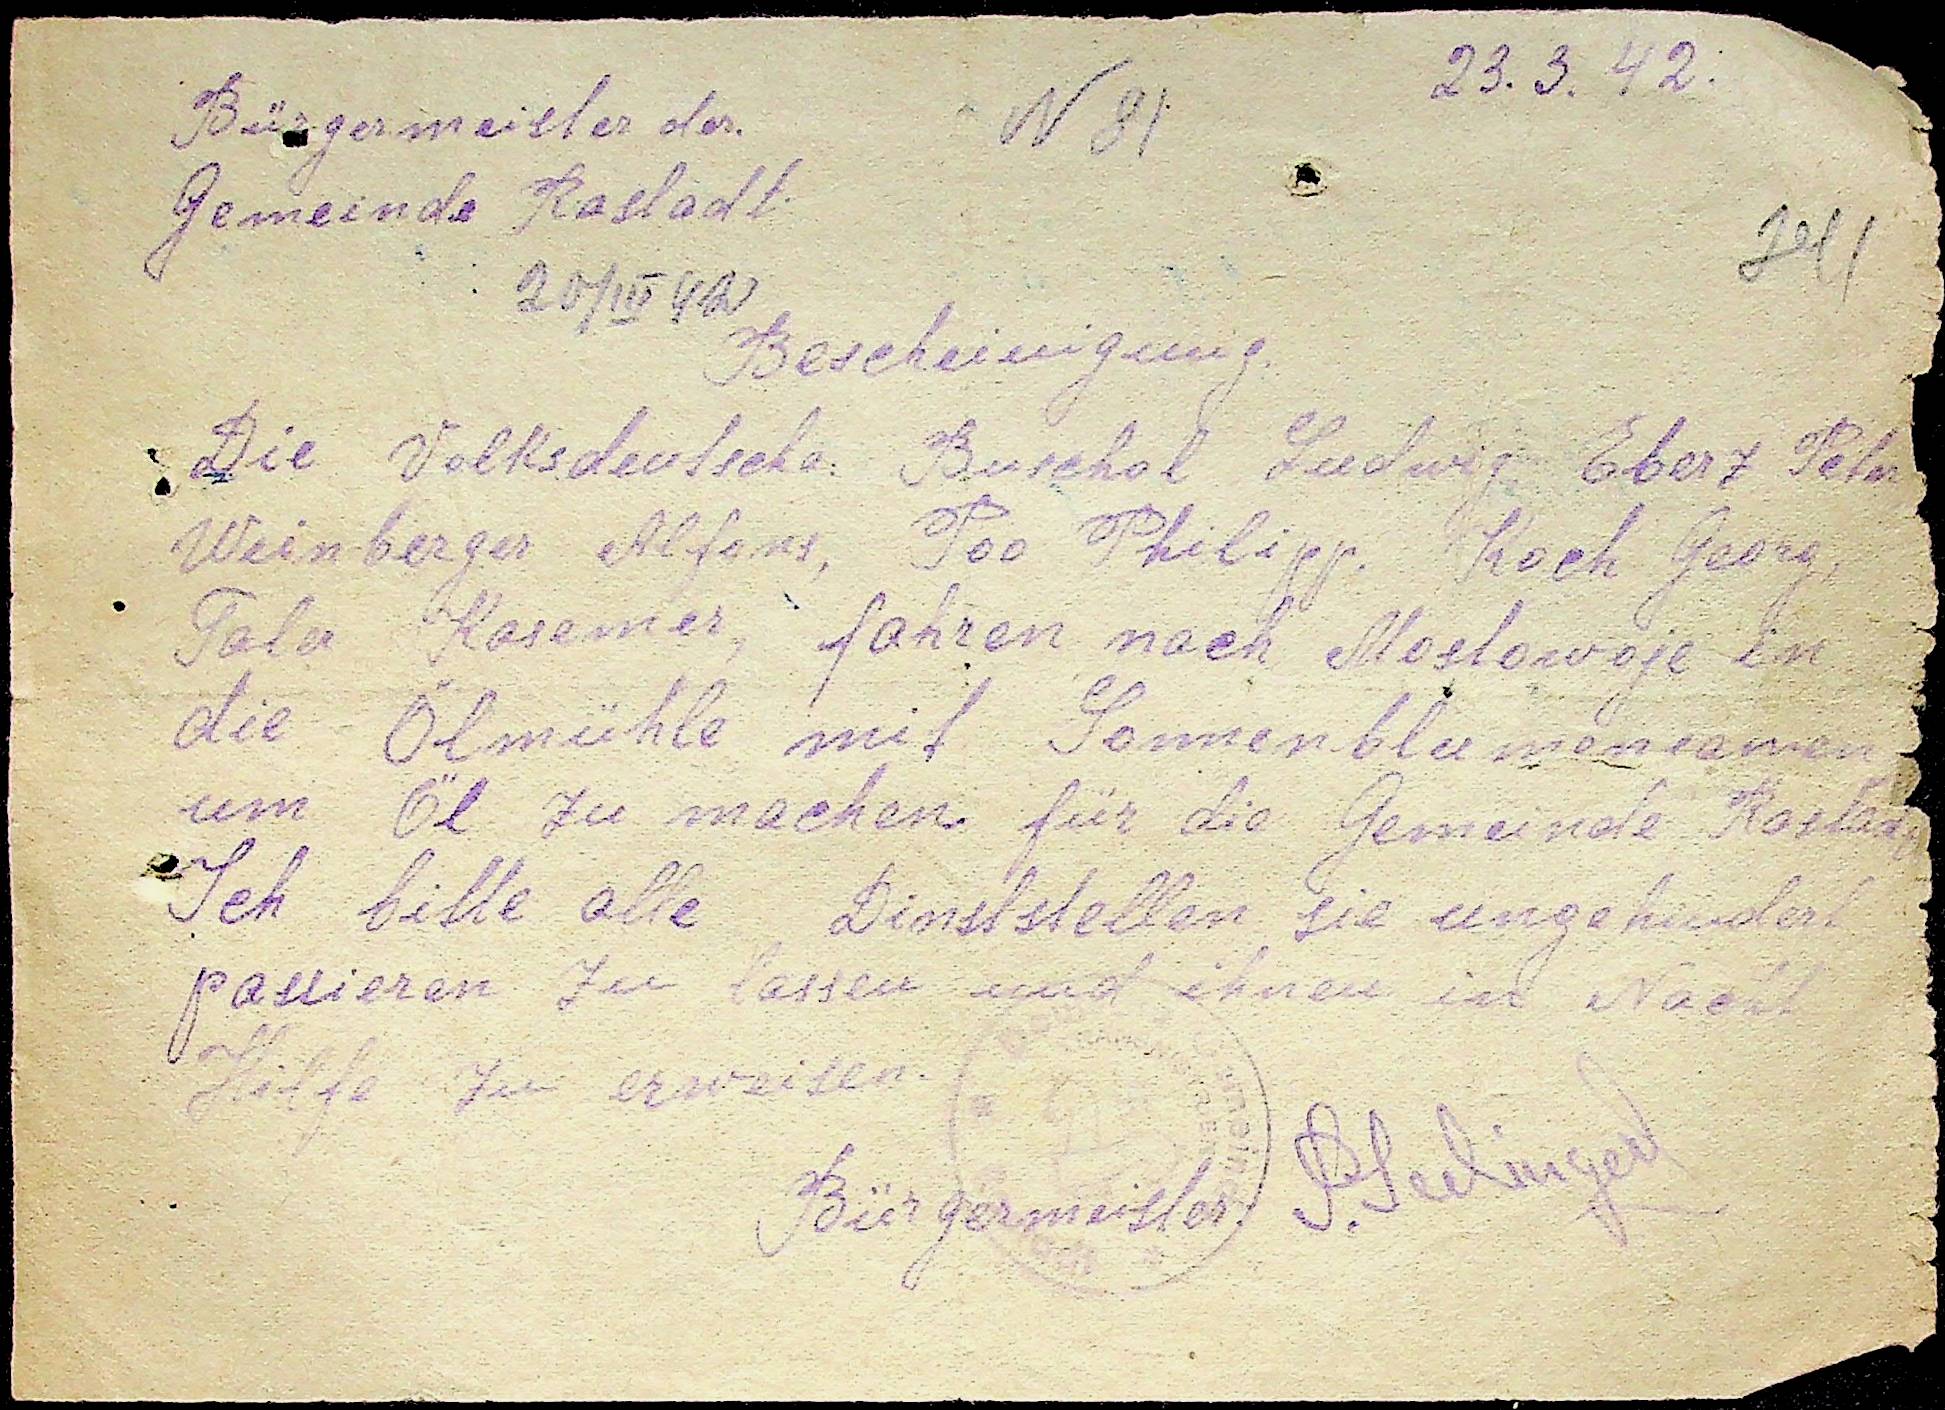 23. 3. 42.
Bürgermeister der.
N 81
Gemeinde Rastadt.
20/III 42
Bescheinigung.
Die Volksdeutsche Buschol Ludwig Eberz Peter
Weinberger Alfons, Poo Philipp. Koch Georg,
Kasemer, fahren nach Mostowoje in
die Ölmühle mit Sonnenblumensamen
um Öl zu machen für die Gemeinde Rastadt
Ich bitte alle Dinststellen sie ungehindert
passieren zu lassen und ihnen in Nacht
Hilfe zu erweisen.
Bürgermeister